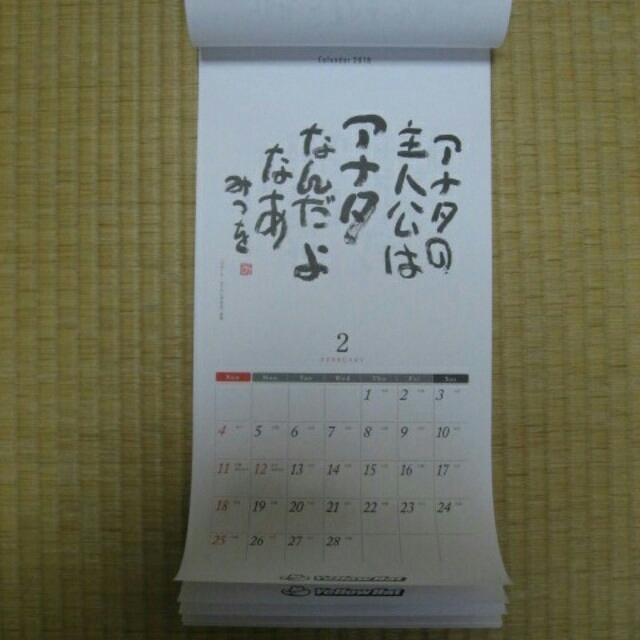 Calendar 2018
アナタの
主人公は
アナタ
なんだよ
なあ
みつを
2
FEBRUARY
Sun Mon Tue Wed Thu Fri Sat
1 2 3
4 5 6 7 8 9 10
11 12 13 14 15 16 17
18 19 20 21 22 23 24
25 26 27 28
Yellow Hat
Yellow Hat